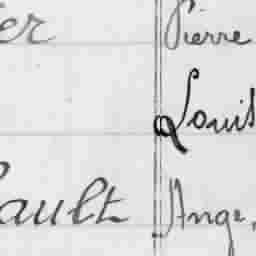 er Pierre
Louis
ault Ange